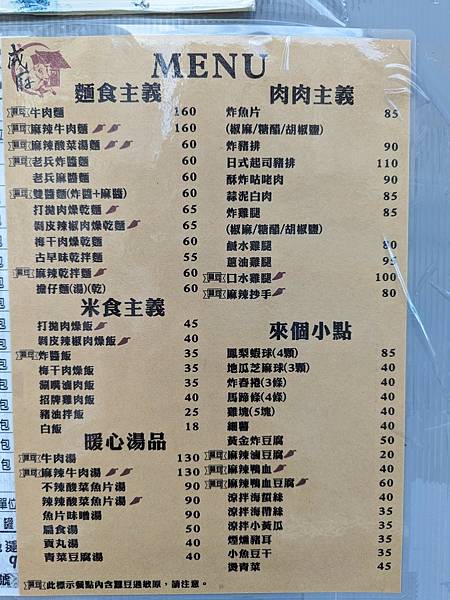 MENU
麵食主義
牛肉麵 160
麻辣牛肉麵 160
麻辣酸菜湯麵 60
老兵炸醬麵 60
老兵麻醬麵 60
雙醬麵(炸醬+麻醬) 60
打拋肉燥乾麵 65
剝皮辣椒肉燥乾麵 65
梅干肉燥麵 60
古早味乾拌麵 55
麻辣乾拌麵 60
擔仔麵(湯)(乾) 60
米食主義
打拋肉燥飯 45
剝皮辣椒肉燥飯 40
炸醬飯 35
梅干肉燥飯 35
涮嘴滷肉飯 35
招牌雞肉飯 40
豬油拌飯 25
白飯 18
暖心湯品
牛肉湯 130
麻辣牛肉湯 130
不辣酸菜魚片湯 90
辣辣酸菜魚片湯 90
魚片味噌湯 90
扁食湯 50
貢丸湯 40
青菜豆腐湯 40
肉肉主義
炸魚片 85
(椒麻/糖醋/胡椒鹽)
炸豬排 90
日式起司豬排 110
酥炸咕咾肉 90
蒜泥白肉 85
炸雞腿 85
(椒麻/糖醋/胡椒鹽)
鹹水雞腿 80
蔥油雞腿 95
口水雞腿 100
麻辣抄手 80
來個小點
鳳梨蝦球(4顆) 85
地瓜芝麻球(3顆) 40
炸春捲(3條) 40
馬蹄條(4條) 40
雞塊(5塊) 40
細薯 40
黃金炸豆腐 50
麻辣滷豆腐 20
麻辣鴨血 40
麻辣鴨血豆腐 60
涼拌海蜇絲 40
涼拌海帶絲 35
涼拌小黃瓜 35
煙燻豬耳 35
小魚豆干 35
燙青菜 45
此標示餐點內含蠶豆過敏原，請注意。